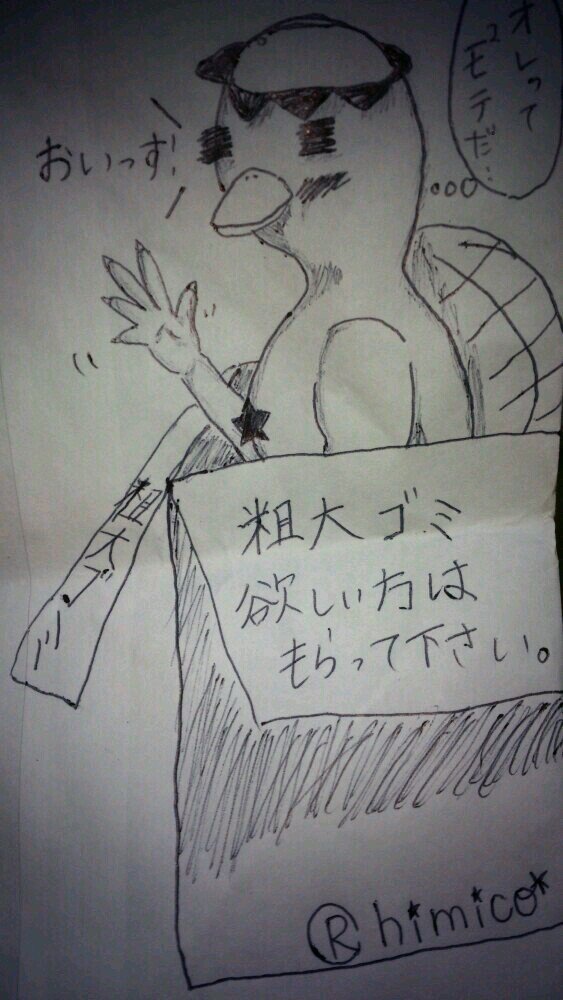 オレって
モテ²だ…
おいっす!
粗大ゴミ
粗大ゴミ
欲しい方は
もらって下さい。
Ⓡhimico*